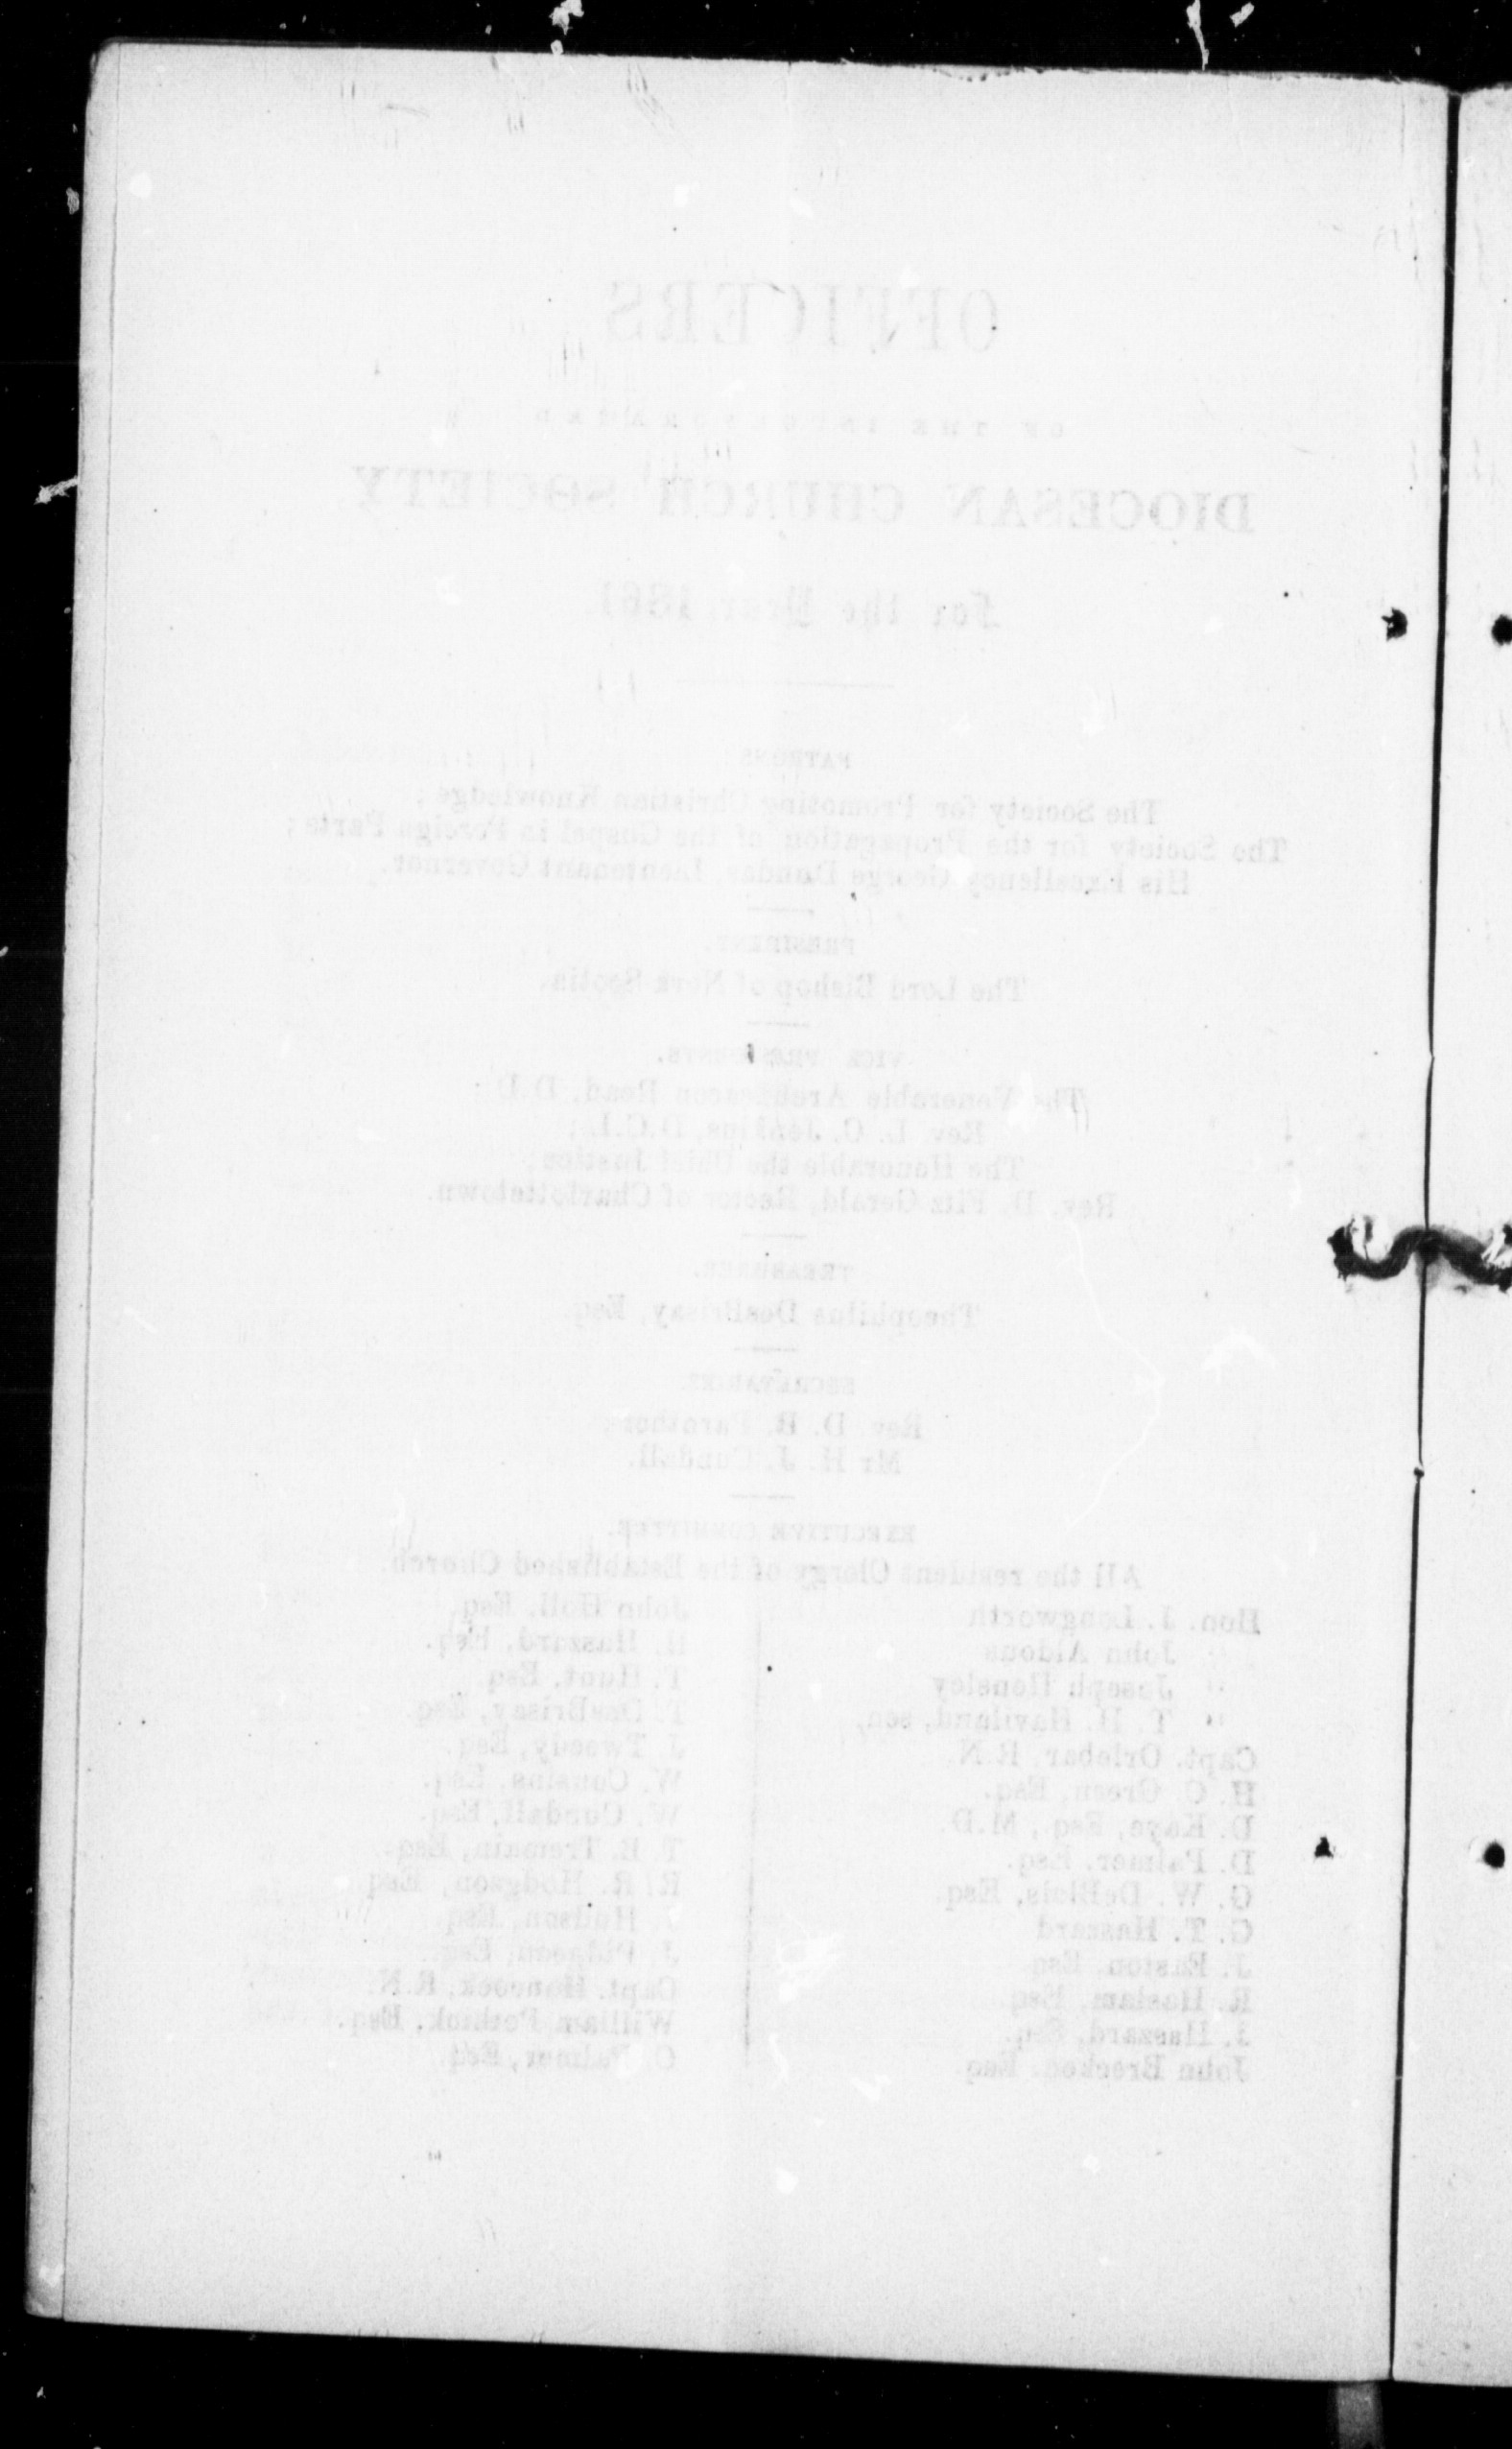 OFFICERS
OF THE INCORPORATED
DIOCESAN CHURCH SOCIETY
For the Year 1861
PATRONS
The Society for Promoting Christian Knowledge;
The Society for the Propagation of the Gospel in Foreign Parts;
His Excellency George Dundas, Lieutenant Governor.
PRESIDENT
The Lord Bishop of Nova Scotia.
VICE PRESIDENTS.
The Venerable Archdeacon Read, D.D.
Rev. L. C. Jenkins, D.C.L.;
The Honorable the Chief Justice;
Rev. D. Fitz Gerald, Rector of Charlottetown.
TREASURER.
Theophilus DesBrisay, Esq.
SECRETARIES
Rev. D. B. Parnther
Mr H. J. Cundall.
EXECUTIVE COMMITTEE.
All the resident Clergy of the Established Church.
Hon. J. Longworth
John Aldous
" Joseph Hensley
" T. H. Haviland, sen,
Capt. Orlebar, R.N.
H. C. Green, Esq.
D. Kaye, Esq., M.D.
D. Palmer, Esq.
G. W. DeBlois, Esq.
G. T. Haszard
J. Easton, Esq
R. Haslam, Esq.
J. Haszard, Esq.
John Brecken, Esq.
John Holl, Esq.
H. Haszard, Esq.
T. Hunt, Esq
T. DesBrisay, Esq.
J. Tweedy, Esq.
W. Cousins, Esq.
W. Cundall, Esq.
T. E. Tremain, Esq.
R. R. Hodgson, Esq.
Hudson, Esq.
J. Pidgeon, Esq.
Capt. Hancock, R.N.
William Pethick, Esq.
C. Palmer, Esq.